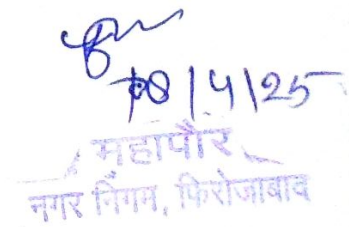 /4/25
महापौर
नगर निगम, फिरोजाबाद